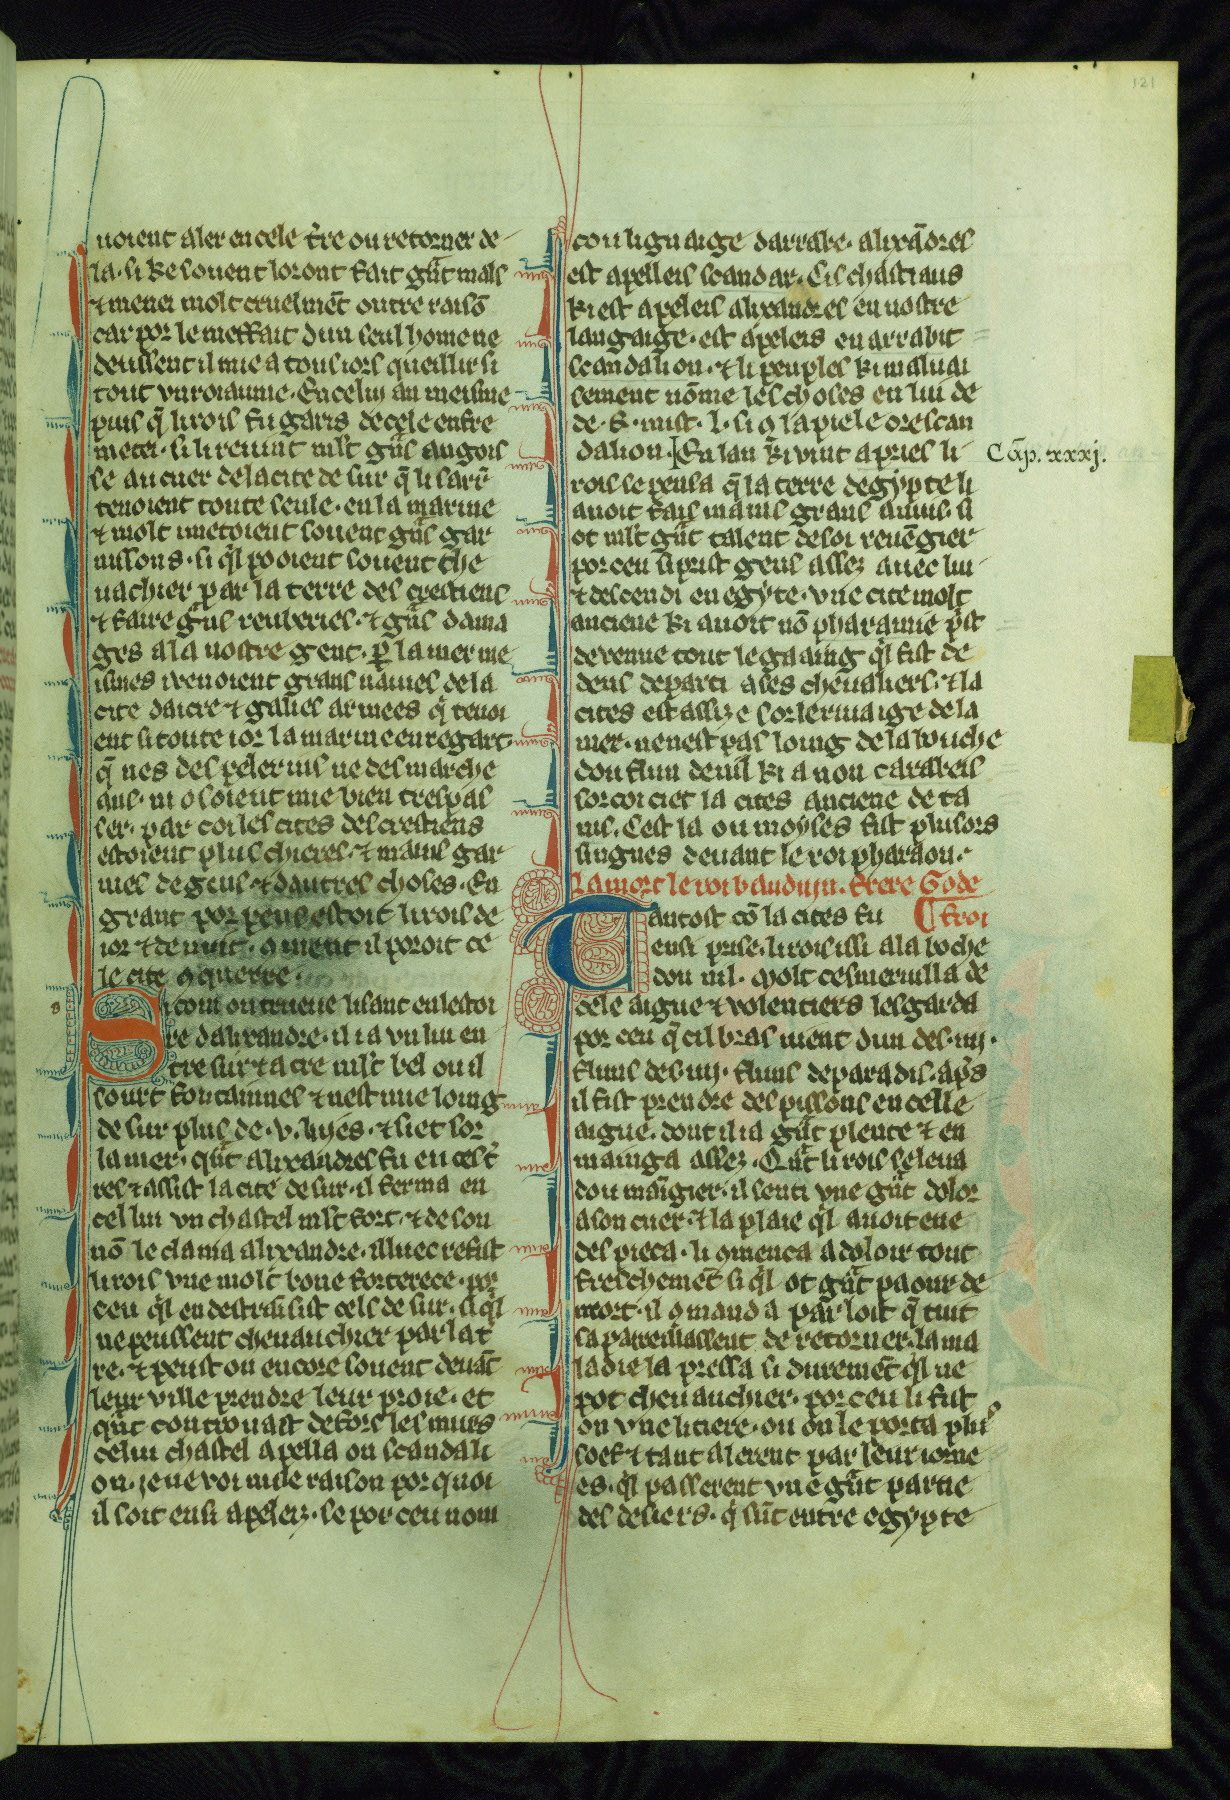 121
uoient aler en cele t̃re ou retorner de
la. si ke souent loront fait gñt mals
⁊ menei molt cruelmẽt outre raisõ
car por le meffait dun seul home ne
deussent il mie a tous iors queillir si
tout vn roiaume. En celui an meisme
puis q̃ li rois fu garis de cele enfre
metei. si li reuint mľt gñs angois
se au cuer de la cite de sur q̃ li sarr̃
tenoient toute seule. en la marine
⁊ molt imetoient souent gñs gar
nissons. si ql pooient souent che
uachier par la terre des crestiens
⁊ faire gñs reuberies. ⁊ gñs dama
ges a la nostre gent. ꝑ la mer me
ismes i venoient grans nauies de la
cite dacre ⁊ galies armees q̃ tenoi
ent si toute ior la marine en regart
q̃ nes des pelerins ne des marche
ans. ni osoient mie bien trespas
ser. par coi les cites des crestiens
estoient plus chieres. ⁊ mains gar
nies de gens ⁊ dautres choses. En
grant por pens estoit li rois de
ior ⁊ de nuit. 9ment il poroit ce
le cite 9querre.
Si com on trueue lisant en lestoi
re dalixandre. il i a vn liu en
tre sur ⁊ acre mľt bel ou il
sourt fontainnes ⁊ nest mie loing
de sur plus de .v. liues. ⁊ siet sor
la mer. qñt alixandres fu en cest̃
res ⁊ assist la cite de sur. il ferma en
cel liu vn chastel mľt fort. ⁊ de son
nõ le clama alixandre. illuec refist
li rois vne molt bone forterece. por
ceu ql en destrãisist cels de sur. si ql
ne peussent cheuauchier par la t̃
re. ⁊ peust on encore souent deuãt
leur ville prendre leur proie. et
qñt controuast defors les murs
celui chastel apella on scandali
on. je ne voi mie raison por quoi
il soit ensi apeleiz. se por ceu nom
con li gnaige darrabe. alixãdres
est apelleis scandar. Cis chastiaus
ki est apeleis alixandres en nostre
langaige. est apeleis en arrabit
scandalion. ⁊ li peuples ki maluai
sement nõme les choses en lui de
de .k. mist .l. si 9 lapiele ore scan
dalion. En lan ki vint apries li
rois se pensa q̃ la terre degypte li
auoit fais mains grans anuis. si
ot mľt gñt talent de soi reuẽgier
por ceu si prist gens assez auec lui
⁊ descendi en egypte. vne cite molt
anciene ki auoit nõ pharamie p̃st
de venue tout le gaaing ql fist de
dens departi a ses cheualiers. ⁊ la
cites est assize sor le riuaige de la
mer. ne nest pas loing de la buche
dou flun de nil. ki a non carabeis
sor coi ciet la cites anciene de ta
nis. Cest la ou moyses fist plusors
singnes deuant le roi pharaon.
La mort le roi bauduyn. frere Gode
froi
Tantost cõ la cites fu
ensi prise. li rois issi a la boche
dou nil. molt ce smeruilla de
cele aigue ⁊ volentiers lesgarda
por ceu q̃ cil bras uient dun des .iiij.
fluns des .iiij. fluns de paradis. ap̃s
il fist prendre des pissons en celle
aigue. dont il i a gñt plente ⁊ en
mainga assez. Qñt li rois se leua
dou maĩgier. il senti vne gñt dolor
a son cuer. ⁊ la plaie ql auoit eue
des pieca. li 9menca a doloir tout
freschemẽt si ql ot gñt paour de
mort. il 9manda par lost q̃ tuit
sapareillassent de retorner. la ma
ladie la pressa si duremẽt ql ne
pot cheuauchier. por ceu li fist
on vne litiere. ou on le porta plus
soef ⁊ tant alerent par leur iorne
es. ql passerent vne gñt partie
des desiers. q̃ sũt entre egypte
Cap̃. xxxj.